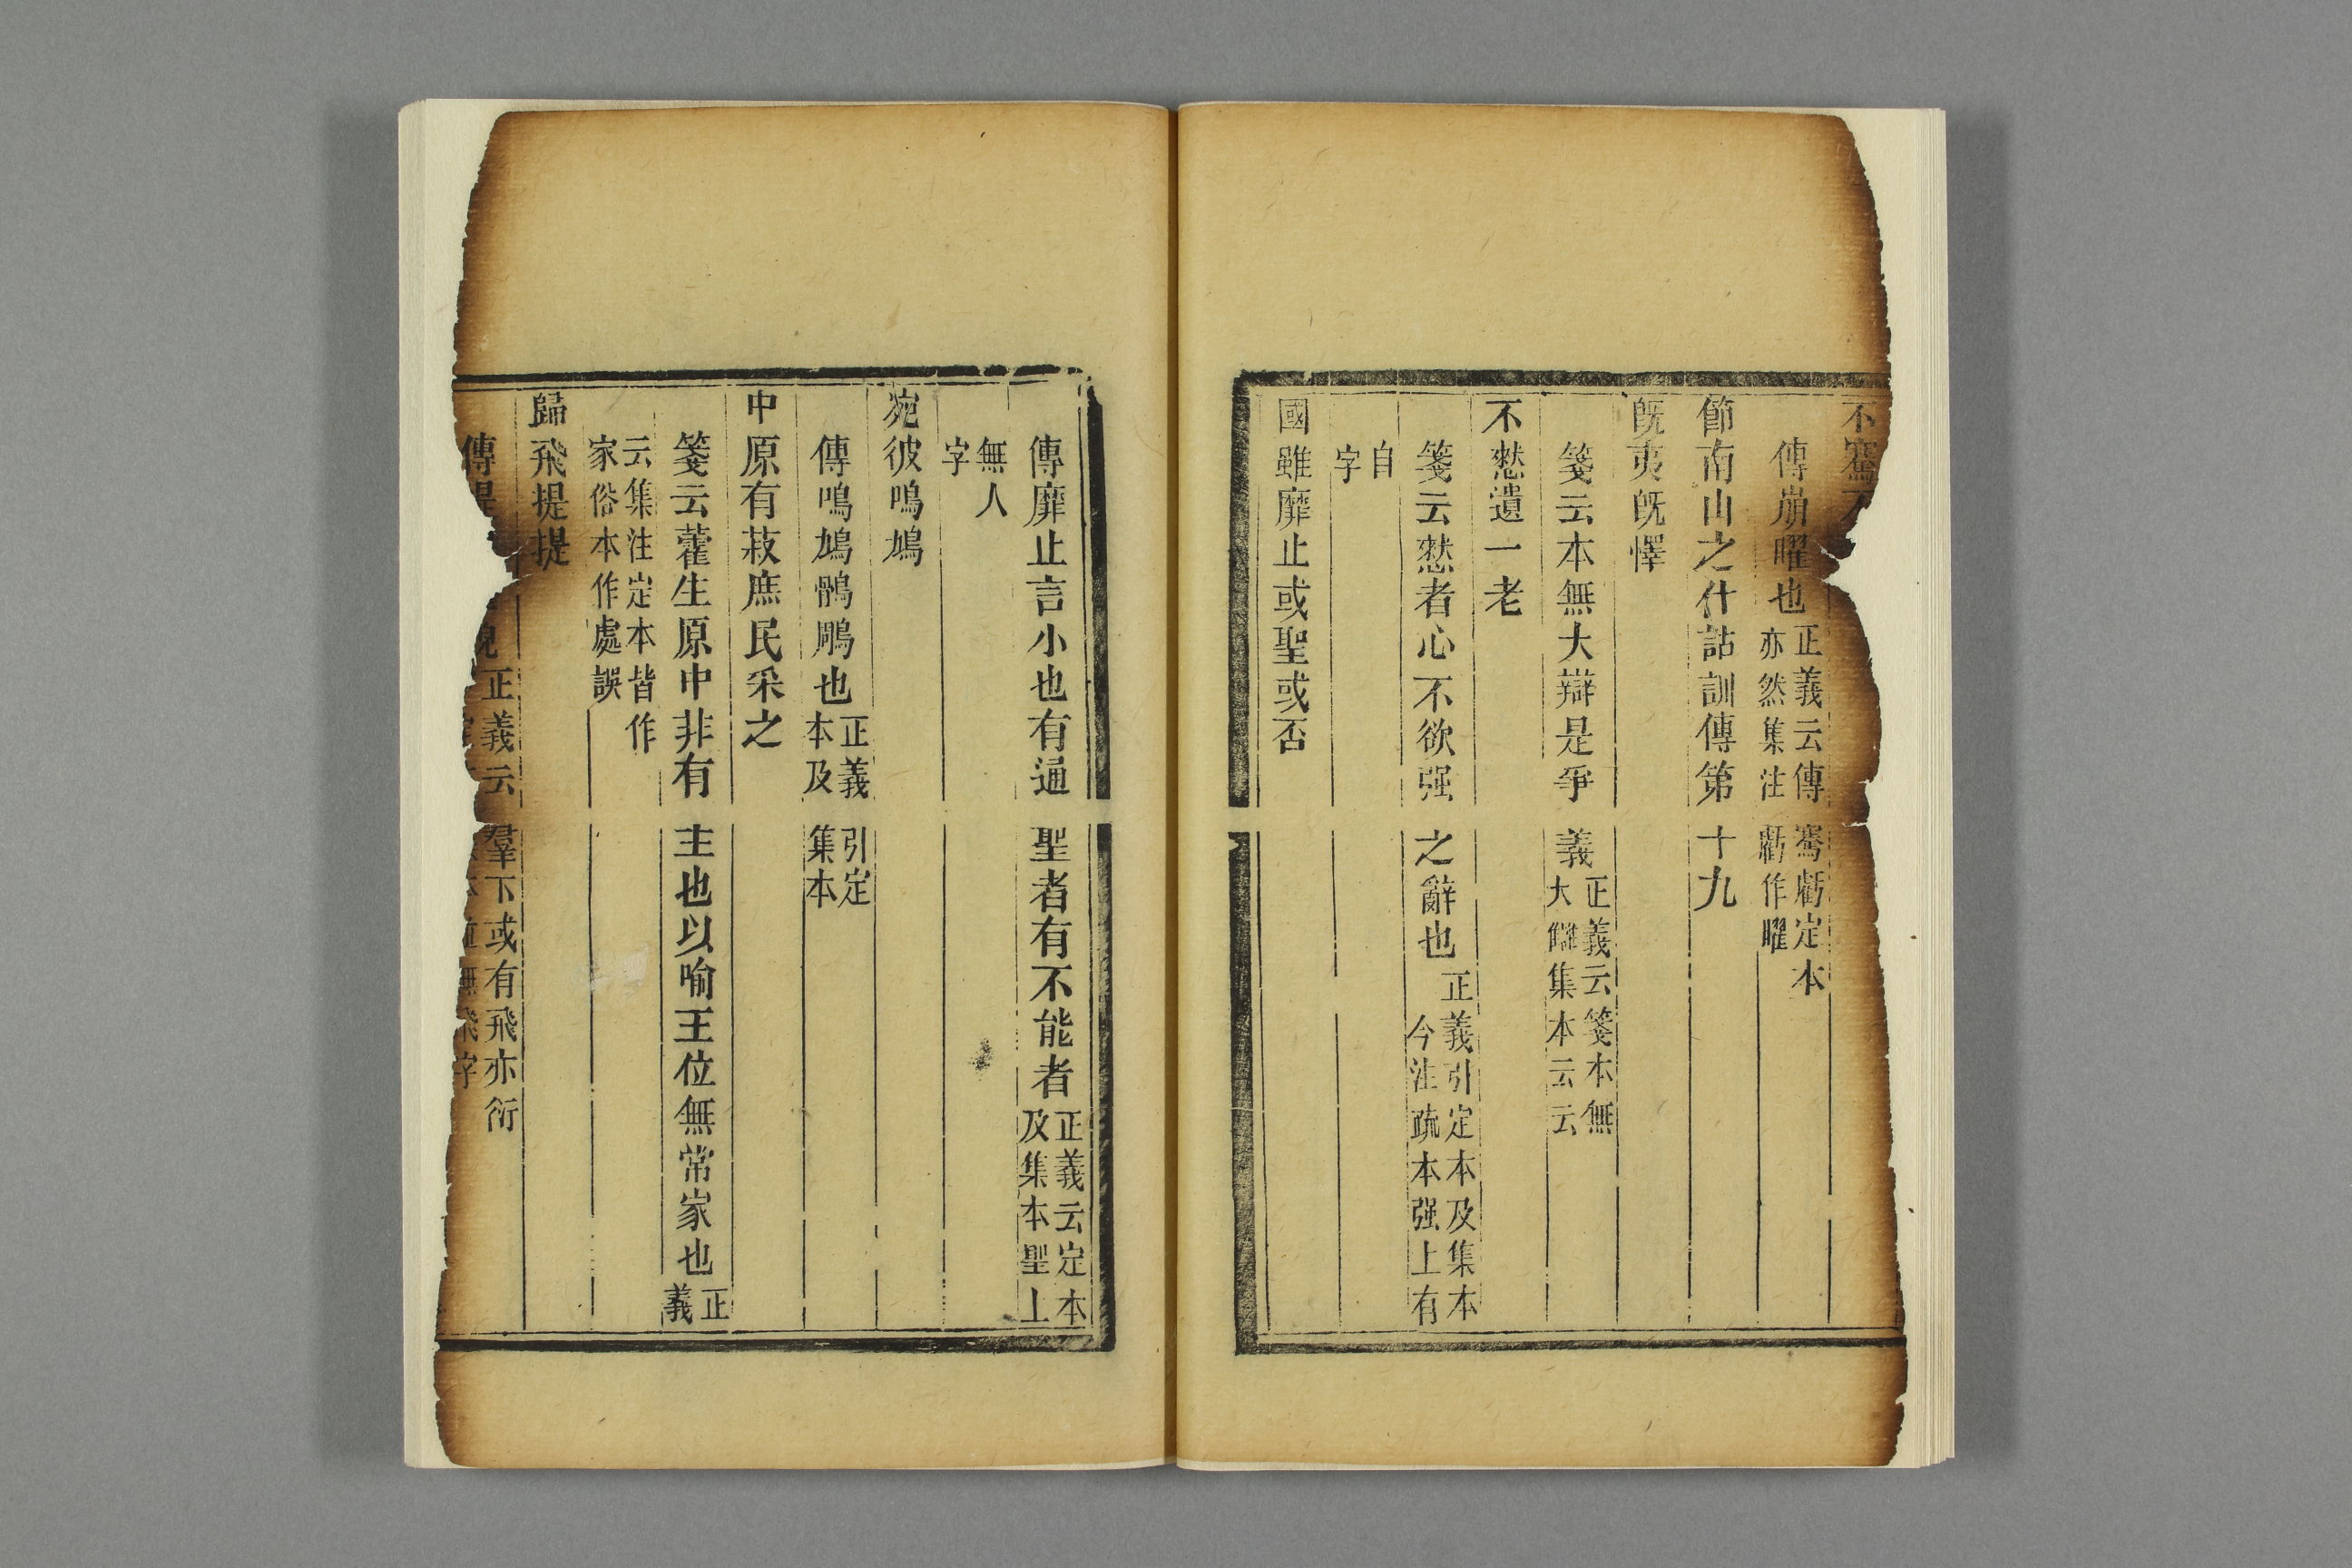 不騫不
傳崩曜也正義云傳騫虧定本
亦然集注虧作曜
節南山之什詁訓傳第十九
既夷既懌
箋云本無大辯是爭義正義云箋本無
大讎集本云云
不憖遺一老
箋云憖者心不欲强之辭也正義引定本及集本
今注疏本强上有
自
字
國雖靡止或聖或否
傳靡止言小也有通聖者有不能者正義云定本
及集本聖上
無人
字
宛彼鳴鳩
傳鳴鳩鶻鵰也正義引定
本及集本
中原有菽庶民采之
箋云藿生原中非有主也以喻王位無常家也正
義
云集注定本皆作
家俗本作處誤
歸飛提提
傳提
正義云羣下或有飛亦衍
無飛字